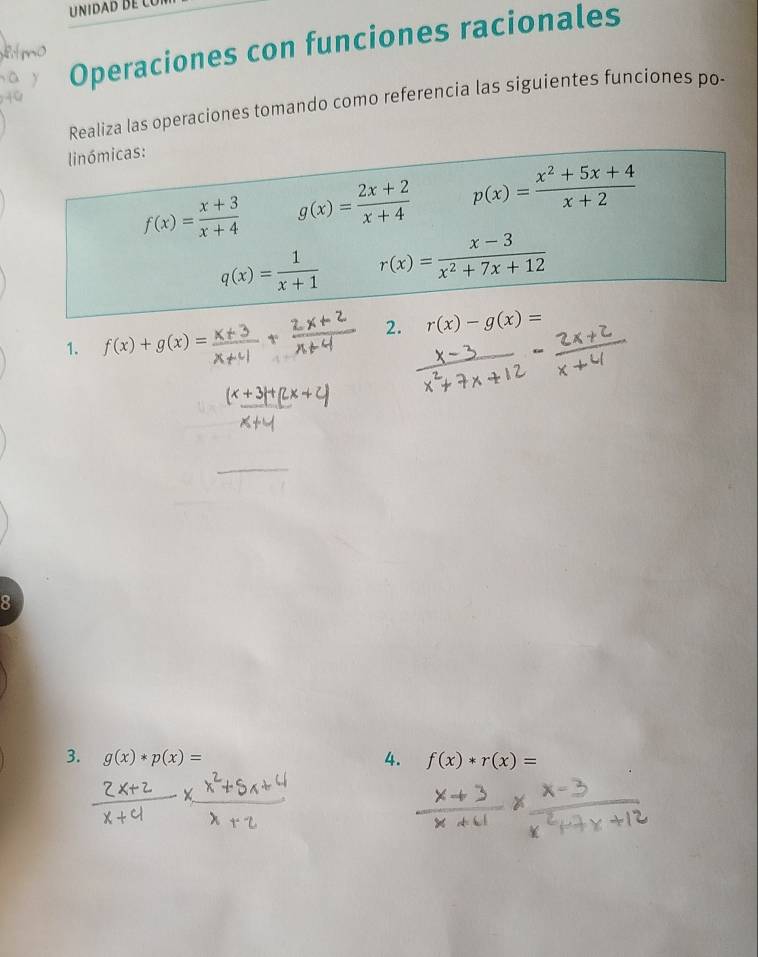 UNIDAD DE
Operaciones con funciones racionales
Realiza las operaciones tomando como referencia las siguientes funciones po-
linómicas:
f(x) = (x + 3)/(x + 4) g(x) = (2x + 2)/(x + 4) p(x) = (x² + 5x + 4)/(x + 2)
q(x) = 1/(x + 1) r(x) = (x − 3)/(x² + 7x + 12)
1. f(x) + g(x) = (x+3)/(x+4) + (2x+2)/(x+4)
((x+3)+(2x+2))/(x+4)
2. r(x) − g(x) =
(x-3)/(x²+7x+12) - (2x+2)/(x+4)
8
3. g(x) * p(x) =
(2x+2)/(x+4) x (x²+5x+4)/(x+2)
4. f(x) * r(x) =
(x+3)/(x+4) x (x-3)/(x²+7x+12)